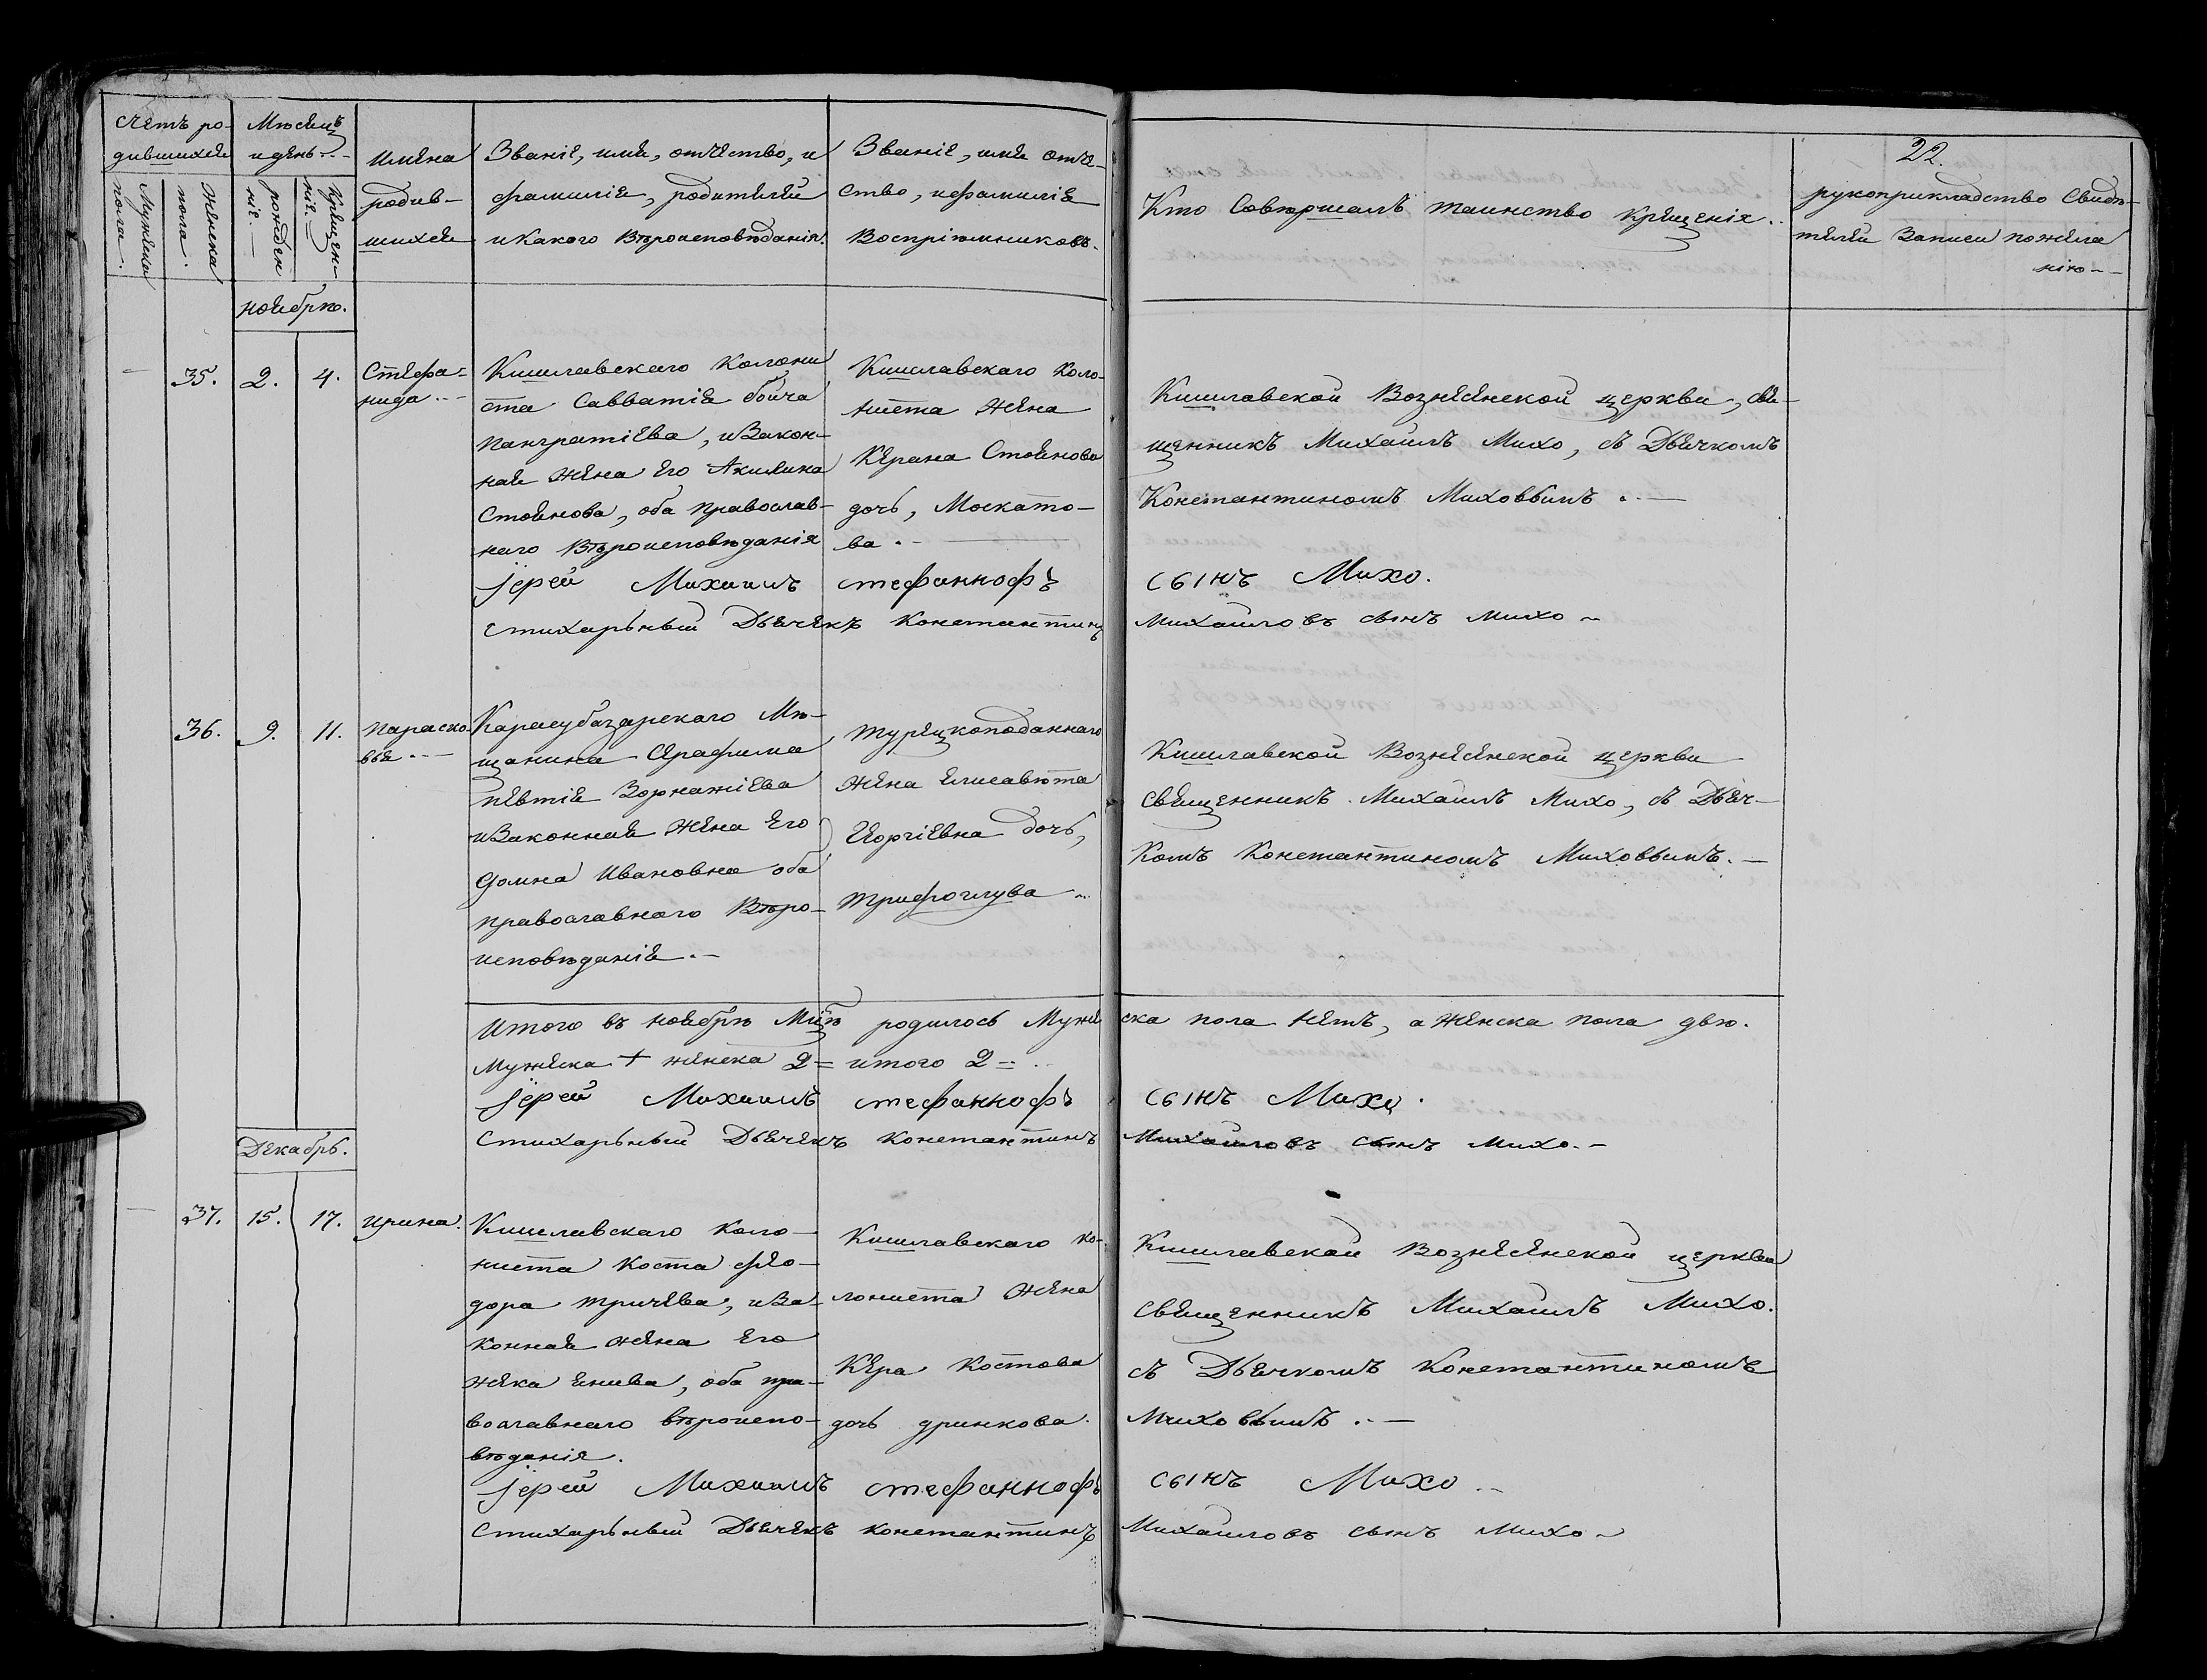 22.
Счетъ ро-
дившихся
Мужеска
пола.
Женска
пола.
Месяцъ
и день.
рожден
ніе.
Крещен-
ніе.
Имена
родив-
шихся
Званіе, имя, отчество, и
фамилія, родителей
и какого Вѣроисповѣданія.
Званіе, имя отче-
ство, и фамилія
Воспріемниковъ.
Кто Совершалъ таинство крещенія.
рукоприкладство Свидѣ-
телей Записи по жела
нію
ноябрь.
35.
2.
4.
Стефа-
нида
Кишлавскаго колони
ста Савватія бойча
Панкратіева, и Закон-
ная жена Его Акилина
Стоянова, оба православ-
наго Вѣроисповѣданія
Кишлавскаго коло-
ниста жена
Керана Стоянова
дочь, Москато-
ва.
Кишлавской Вознесенской церкви, свя-
щенникъ Михаилъ Михо, съ Дьячкомъ
Константиномъ Миховымъ.
іерей Михаилъ стефанновъ сынъ Михо.
Стихарьный Дьячекъ Константинъ Михайловъ сынъ Михо
36.
9.
11.
Параско-
вья
Карасубазарскаго Мѣ-
щанина Серафима
певтія
и Законная жена Его
Домна Ивановна оба
православнаго Вѣро-
исповѣданія.
турецкоподаннаго
жена Елисавета
Георгіевна дочь,
Кишлавской Вознесенской церкви
священникъ Михаилъ Михо, съ Дьяч-
комъ Константиномъ Миховымъ.
Итого въ ноябрѣ Мцѣ родилось Муже ска пола нетъ, а женска пола двѣ.
Мужеска + женска 2 = итого 2 =
іерей Михаилъ стефанновъ сынъ Михо.
Стихарьный Дьячекъ Константинъ Михайловъ сынъ Михо.
Декабрь.
37.
15.
17.
Ирина.
Кишлавскаго коло-
ниста Коста фео-
дора тричева, и За-
конная жена Его
жека Енива, оба пра-
вославнаго вѣроиспо-
вѣданія.
Кишлавскаго ко-
лониста жена
Кера Костова
дочь дринкова.
Кишлавской Вознесенской церкви
священникъ Михаилъ Михо.
съ Дьячкомъ Константиномъ
Миховымъ.
іерей Михаилъ стефанновъ сынъ Михо
Стихарьный Дьячекъ Константинъ Михайловъ сынъ Михо